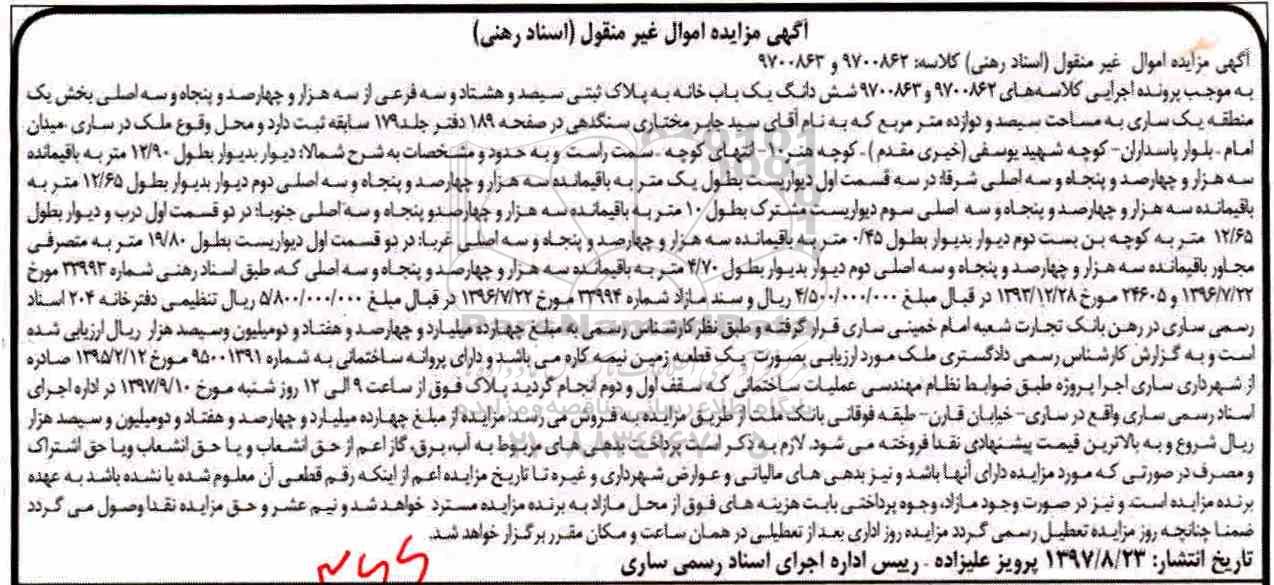 آگهی مزایده اموال غیر منقول (اسناد رهنی)
آگهی مزایده اموال غیر منقول (اسناد رهنی) کلاسه: ۹۷۰۰۸۶۲ و ۹۷۰۰۸۶۳
به موجب پرونده اجرایی کلاسه‌های ۹۷۰۰۸۶۲ و ۹۷۰۰۸۶۳ شش دانگ یک باب خانه به پلاک ثبتی سیصد و هشتاد و سه فرعی از سه هزار و چهارصد و پنجاه و سه اصلی بخش یک
منطقه یک ساری به مساحت سیصد و دوازده متر مربع که به نام آقای سید جابر مختاری سنگدهی در صفحه ۱۸۹ دفتر جلد ۱۷۹ سابقه ثبت دارد و محل وقوع ملک در ساری ـ میدان
امام ـ بلوار پاسداران- کوچه شهید یوسفی (خیری مقدم) ـ کوچه هنر ۱- انتهای کوچه ـ سمت راست و به حدود و مشخصات به شرح شمالا: دیوار بدیوار بطول ۱۲/۹۰ متر به باقیمانده
سه هزار و چهارصد و پنجاه و سه اصلی شرقا: در سه قسمت اول دیواریست بطول یک متر به باقیمانده سه هزار و چهارصد و پنجاه و سه اصلی دوم دیوار بدیوار بطول ۱۲/۶۵ متر به
باقیمانده سه هزار و چهارصد و پنجاه و سه اصلی سوم دیواریست مشترک بطول ۱۰ متر به باقیمانده سه هزار و چهارصدو پنجاه و سه اصلی جنوبا: در دو قسمت اول درب و دیوار بطول
۱۲/۶۵ متر به کوچه بن بست دوم دیوار بدیوار بطول ۰/۴۵ متر به باقیمانده سه هزار و چهارصد و پنجاه و سه اصلی غربا: در دو قسمت اول دیواریست بطول ۱۹/۸۰ متر به متصرفی
مجاور باقیمانده سه هزار و چهارصد و پنجاه و سه اصلی دوم دیوار بدیوار بطول ۴/۷۰ متر به باقیمانده سه هزار و چهارصد و پنجاه و سه اصلی که، طبق اسناد رهنی شماره ۳۳۹۹۳ مورخ
۱۳۹۶/۷/۲۲ و ۲۴۶۰۵ مورخ ۱۳۹۳/۱۲/۲۸ در قبال مبلغ ۴/۵۰۰/۰۰۰/۰۰۰ ریال و سند مازاد شماره ۳۳۹۹۴ مورخ ۱۳۹۶/۷/۲۲ در قبال مبلغ ۵/۸۰۰/۰۰۰/۰۰۰ ریال تنظیمی دفترخانه ۲۰۴ اسناد
رسمی ساری در رهن بانک تجارت شعبه امام خمینی ساری قرار گرفته و طبق نظر کارشناس رسمی به مبلغ چهارده میلیارد و چهارصد و هفتاد و دومیلیون وسیصد هزار ریال ارزیابی شده
است و به گزارش کارشناس رسمی دادگستری ملک مورد ارزیابی بصورت یک قطعه زمین نیمه کاره می باشد و دارای پروانه ساختمانی به شماره ۹۵۰۰۱۳۹۱ مورخ ۱۳۹۵/۲/۱۲ صادره
از شهرداری ساری اجرا پروژه طبق ضوابط نظام مهندسی عملیات ساختمانی که سقف اول و دوم انجام گردید پلاک فوق از ساعت ۹ الی ۱۲ روز شنبه مورخ ۱۳۹۷/۹/۱۰ در اداره اجرای
اسناد رسمی ساری واقع در ساری- خیابان قارن- طبقه فوقانی بانک ملت از طریق مزایده به فروش می رسد. مزایده از مبلغ چهارده میلیارد و چهارصد و هفتاد و دومیلیون و سیصد هزار
ریال شروع و به بالاترین قیمت پیشنهادی نقدا فروخته می شود. لازم به ذکر است پرداخت بدهی های مربوط به آب، برق، گاز اعم از حق انشعاب و یا حق انشعاب ویا حق اشتراک
و مصرف در صورتی که مورد مزایده دارای آنها باشد و نیز بدهی های مالیاتی و عوارض شهرداری و غیره تا تاریخ مزایده اعم از اینکه رقم قطعی آن معلوم شده یا نشده باشد به عهده
برنده مزایده است و نیز در صورت وجود مازاد، وجوه پرداختی بابت هزینه های فوق از محل مازاد به برنده مزایده مسترد خواهد شد و نیم عشر و حق مزایده نقدا وصول می گردد
ضمنا چنانچه روز مزایده تعطیل رسمی گردد مزایده روز اداری بعد از تعطیلی در همان ساعت و مکان مقرر برگزار خواهد شد.
تاریخ انتشار: ۱۳۹۷/۸/۲۳ پرویز علیزاده ـ رییس اداره اجرای اسناد رسمی ساری